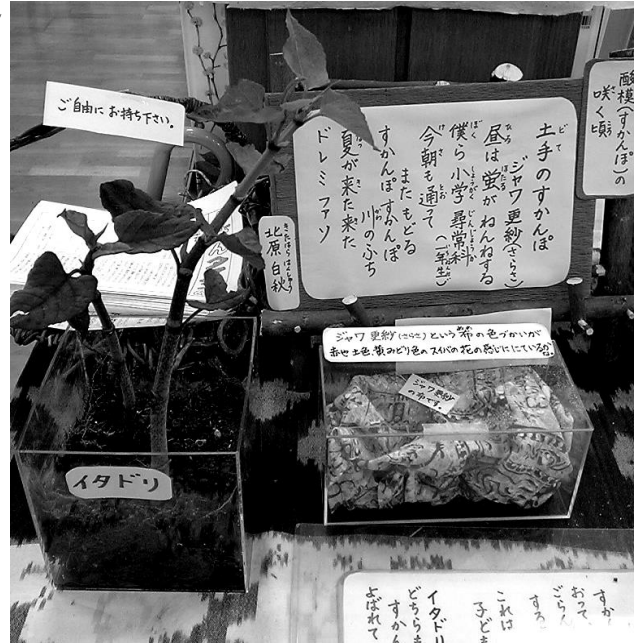 ご自由にお持ち下さい。
酸模(すかんぽ)の
咲く頃
土手のすかんぽ
ジャワ更紗(さらさ)
昼は蛍がねんねする
僕ら小学尋常科
(一年生)
今朝も通って
またもどる
すかんぽすかんぽ
川のふち
夏が来た来た
ドレミファソ
きたはらはくしゅう
北原白秋
ジャワ更紗(さらさ)という布の色づかいが
赤や土色、黄みどり色のスイバの花の感じににている
ジャワ更紗
の布です。
イタドリ
すか
おって、
ごらん
する
これは
子ど
イタドリ
どちらも
すかん
よばれて